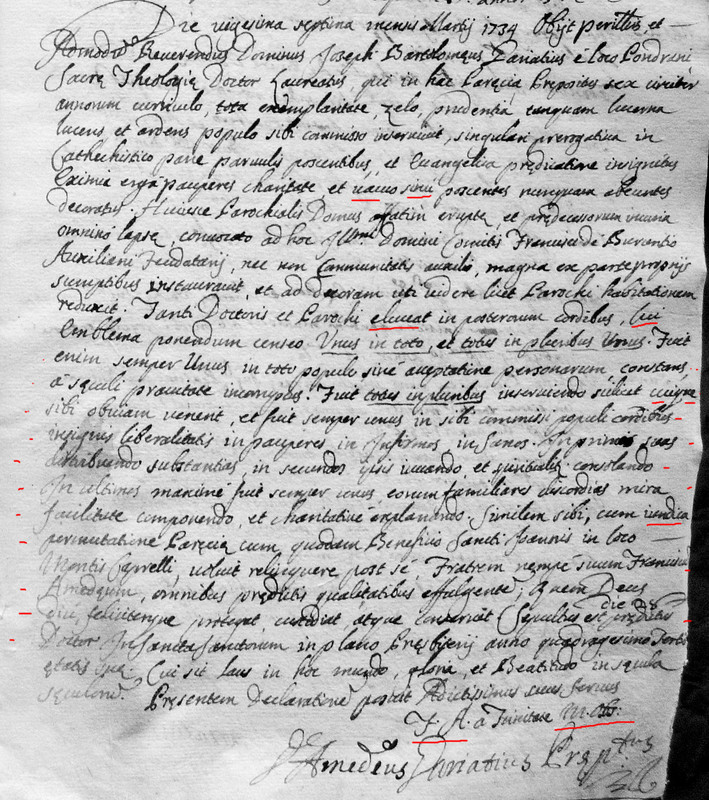 Die vigesima septima mensis Martij 1734 Obijt perillus. et
Admodum Reverendus Dominus Joseph Bartholomeus è loco Londruni
Sacrę Theologię Doctor Laureatus, qui in hac Parecia Prępositus sex circiter
annorum curriculo, tota exemplaritate, zelo, prudentia, tanquam lucerna
lucens et ardens populo sibi commisso inservivit, singulari prerogativa in
Cathechistico pane parvulis poscentibus, et Evangelica predicatione insignitus
Eximia ergà pauperes charitate et vacuo sinu poscentes nunquam abeuntes
decoratus. Huiusce Parochialis Domus affatim et predecessorum
omninò lapsę, convocato ad hoc Illmi Domini Comitis Francisci de
Auxiliani Feudatarij, nec non Communitatis auxilio, magna ex parte proprijs
sumptibus instauravit, et ad decoram uti videre licet Parochi habitationem
reduxit. Tanti Doctoris et Parochi eluceat in posterorum cordibus, Cui
Emblema ponendum censeo. Unus in toto, et totus in pluribus Unus. Fuit
enim semper Unus in toto populo sinè acceptatione personarum constans
à sęculi pravitate incorruptus. Fuit totus in pluribus inserviendo scilicet cuique
sibi obviam venerit, et fuit semper unus in sibi commissi populi cordibus
insignis liberalitatis in pauperes, in Infirmos, in Sanos. In primos suas
distribuendo substantias, in secundos ipsis iuvando, et spiritualib. consolando
In ultimos maximè fuit semper unus eorum familiares discordias mira
facilitate componendo, et charitativè explanando. Similem sibi, cum
permutatione Parecię cum quodam Beneficio Sancti Joannis in loco
Montis voluit relinquere post sè, Fratrem nempè suum Franciscum
Amedęum, omnibus pręditis qualitatibus effulgente; quem Deus
diù, feliciterque protegat custodiat atque conservet. Sepultus est die 28 pręditus
Doctor In Sancta Sanctorum in plano Presbiterij anno quadragesimo
ętatis suę. Cui sit laus in hoc mundo, gloria, et Beatitudo in sęcula
sęculorum. Pręsentem Declarationem posuit Addictissimus suus servus
F. A. à Trinitate
Amedeus Pręptus